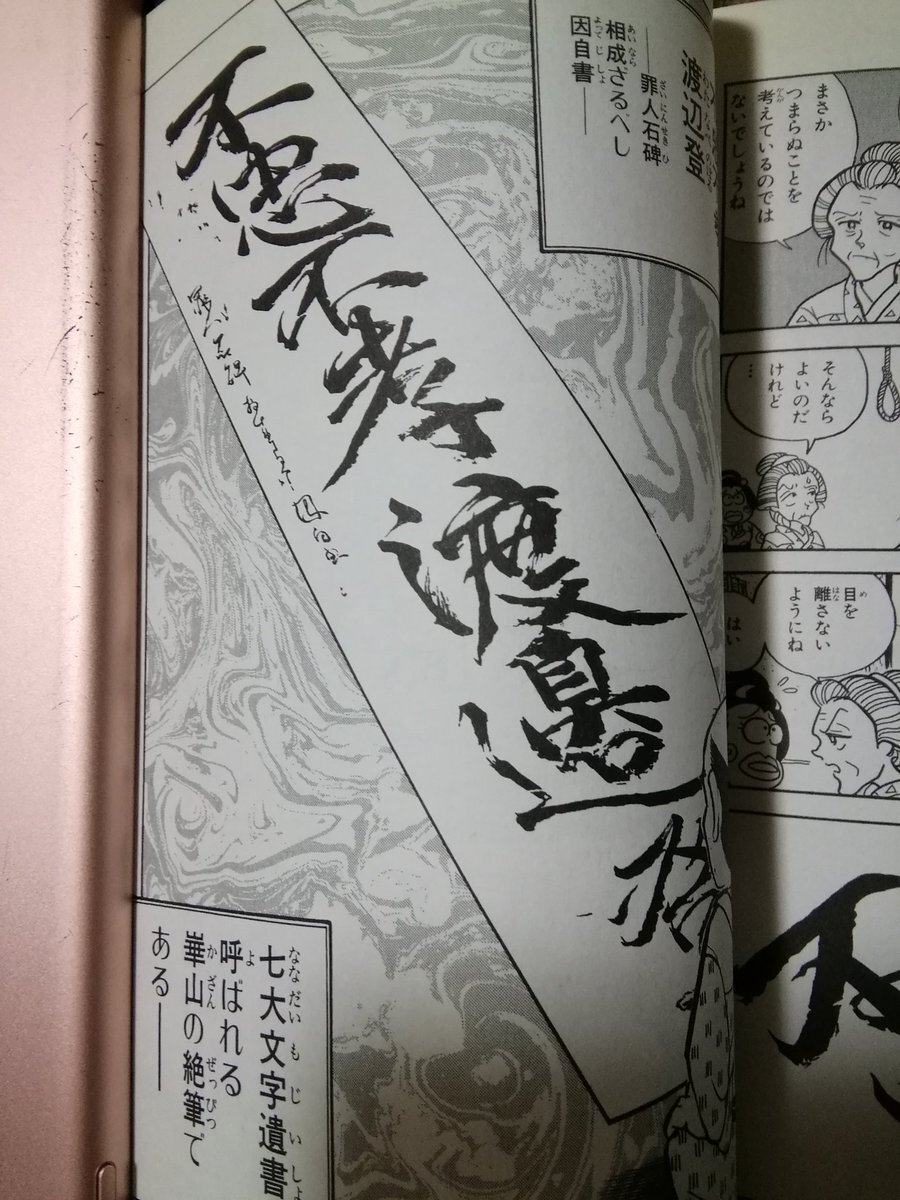 まさか
つまらぬことを
考えているのでは
ないでしょうね
そんなら
よいのだ
けれど
…
目を
離さない
ようにね
はい
不
渡辺登
――罪人石碑
相成ざるべし
因自書――
不忠不孝渡邉登
罪人石碑相成ざるべし因自書
七大文字遺書
呼ばれる
崋山の絶筆で
ある――